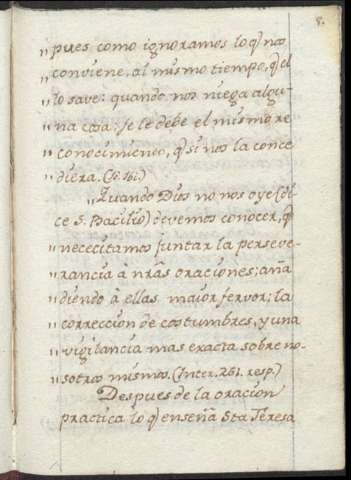 8.
„ pues como ignoramos lo q̃ nos
„ conviene, al mismo tiempo, q̃ el
„ lo save: quando nos niega algu-
„ na cosa, se le debe el mismo re
„ conocimiento, q̃ si nos la conce
„ diera. (
„ Quando Dios no nos oye (di-
ce S. Bacilio) devemos conocer, q̃
„ nececitamos juntar la perseve-
„ rancia à nr̃as oraciones; aña
„ diendo à ellas maior fervor; la
„ correccion de costumbres, y una
„ vigilancia mas exacta sobre no-
„ sotros mismos. (Inter. 261. resp.)
Despues de la oracion
practica lo q̃ enseña Sta Teresa